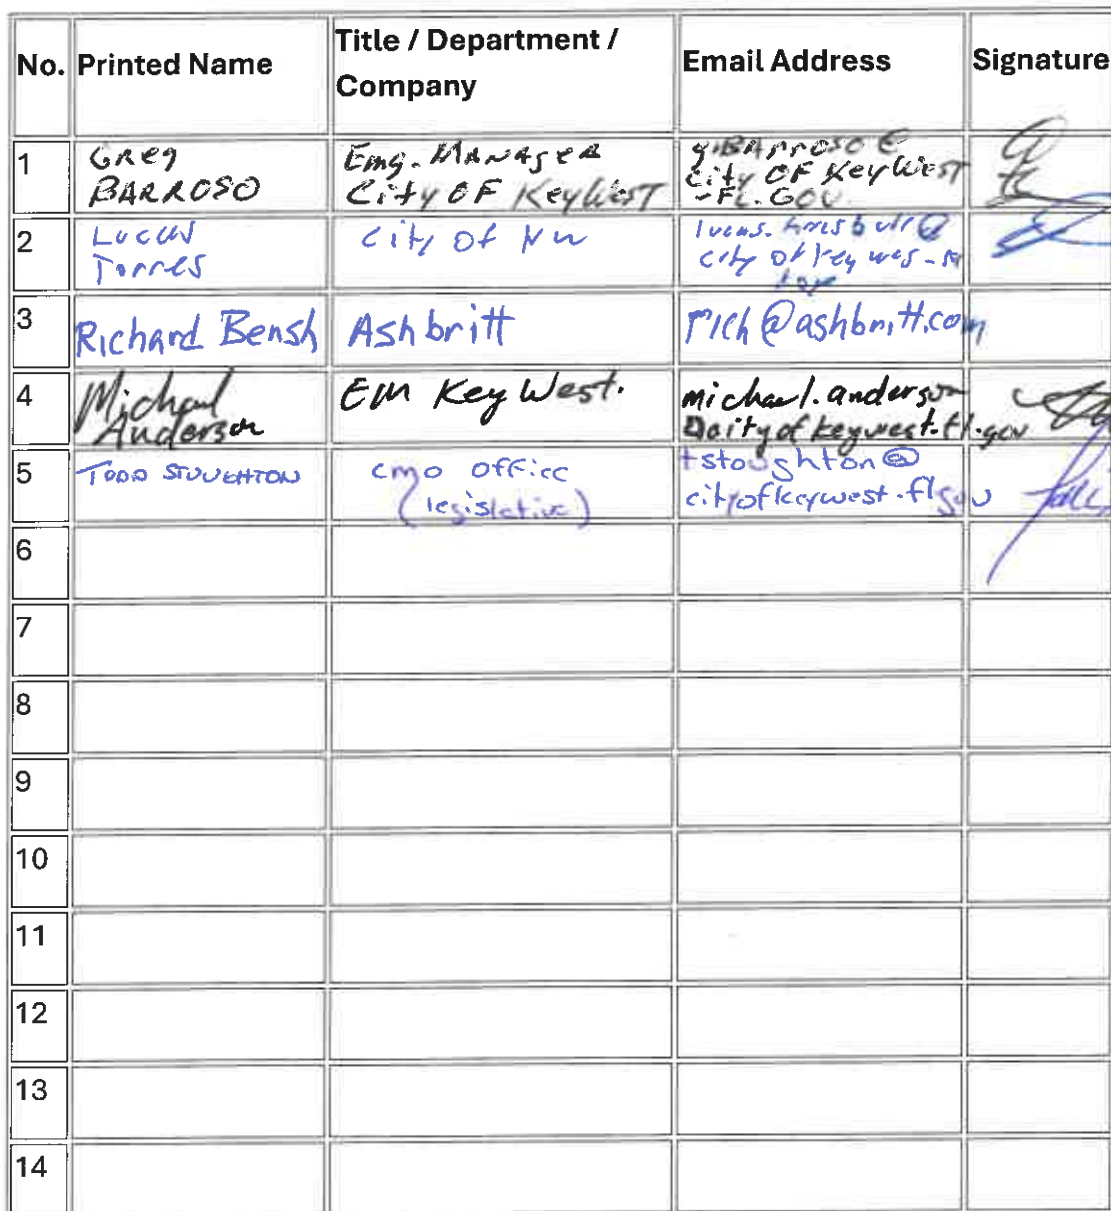 No. Printed Name Title / Department / Company Email Address Signature
1 Greg BARROSO Emg. Manager City OF Key West g.BArroso@ City OF Key West -FL.GOV
2 Lucas Torres City of KW
3 Richard Bensh Ashbritt rich@ashbritt.com
4 Michael Anderson EM Key West. michael.anderson @cityofkeywest.fl.gov
5 TODD STOUGHTON cmo office (legislative) tstoughton@ cityofkeywest.flgov
6
7
8
9
10
11
12
13
14